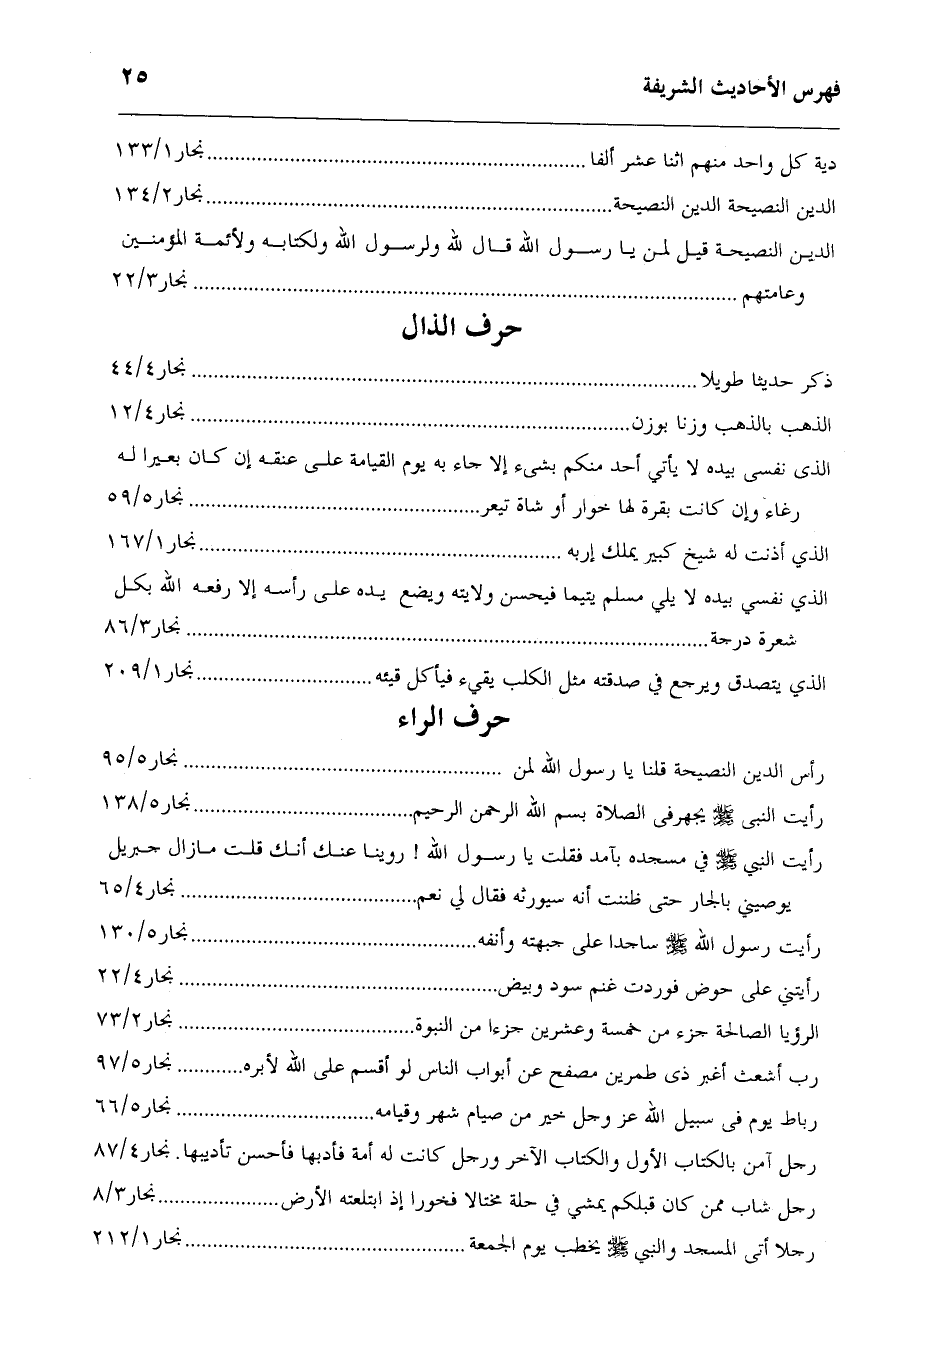 فهرس الأحاديث الشريفة ٢٥
دية كل واحد منهم اثنا عشر ألفا ........ نجار١٣٣/١
الدين النصيحة الدين النصيحة........ نجار١٣٤/٢
الدين النصيحة قيل لمن يا رسول الله قال لله ولرسول الله ولكتابه ولأئمة المؤمنين
وعامتهم ........ نجار٢٢/٣
حرف الذال
ذكر حديثا طويلا ........ نجار٤٤/٤
الذهب بالذهب وزنا بوزن........ نجار١٢/٤
الذى نفسى بيده لا يأتي أحد منكم بشىء إلا جاء به يوم القيامة على عنقه إن كان بعيرا له
رغاء وإن كانت بقرة لها خوار أو شاة تيعر........ نجار٥٩/٥
الذي أذنت له شيخ كبير يملك إربه ........ نجار١٦٧/١
الذي نفسي بيده لا يلي مسلم يتيما فيحسن ولايته ويضع يده على رأسه إلا رفعه الله بكل
شعرة درجة........ نجار٨٦/٣
الذي يتصدق ويرجع في صدقته مثل الكلب يقيء فيأكل قيئه........ نجار٢٠٩/١
حرف الراء
رأس الدين النصيحة قلنا يا رسول الله لمن ........ نجار٩٥/٥
رأيت النبى ﷺ يجهرفى الصلاة بسم الله الرحمن الرحيم........ نجار١٣٨/٥
رأيت النبي ﷺ في مسجده بآمد فقلت يا رسول الله ! روينا عنك أنك قلت مازال جبريل
يوصيني بالجار حتى ظننت أنه سيورثه فقال لي نعم........ نجار٦٥/٤
رأيت رسول الله ﷺ ساجدا على جبهته وأنفه........ نجار١٣٠/٥
رأيتني على حوض فوردت غنم سود وبيض........ نجار٢٢/٤
الرؤيا الصالحة جزء من خمسة وعشرين جزءا من النبوة........ نجار٧٣/٢
رب أشعث أغبر ذى طمرين مصفح عن أبواب الناس لو أقسم على الله لأبره........ نجار٩٧/٥
رباط يوم فى سبيل الله عز وجل خير من صيام شهر وقيامه........ نجار٦٦/٥
رجل آمن بالكتاب الأول والكتاب الآخر ورجل كانت له أمة فأدبها فأحسن تأديبها. نجار٨٧/٤
رجل شاب ممن كان قبلكم يمشي في حلة مختالا فخورا إذ ابتلعته الأرض........ نجار٨/٣
رجلا أتى المسجد والنبي ﷺ يخطب يوم الجمعة ........ نجار٢١٢/١